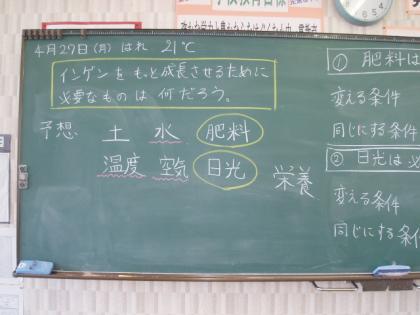 4月27日(月) はれ 21℃
インゲンをもっと成長させるために
必要なものは何だろう。
予想 土 水 肥料
温度 空気 日光 栄養
① 肥料は
変える条件
同じにする条件
② 日光は必
変える条件
同じにする条件